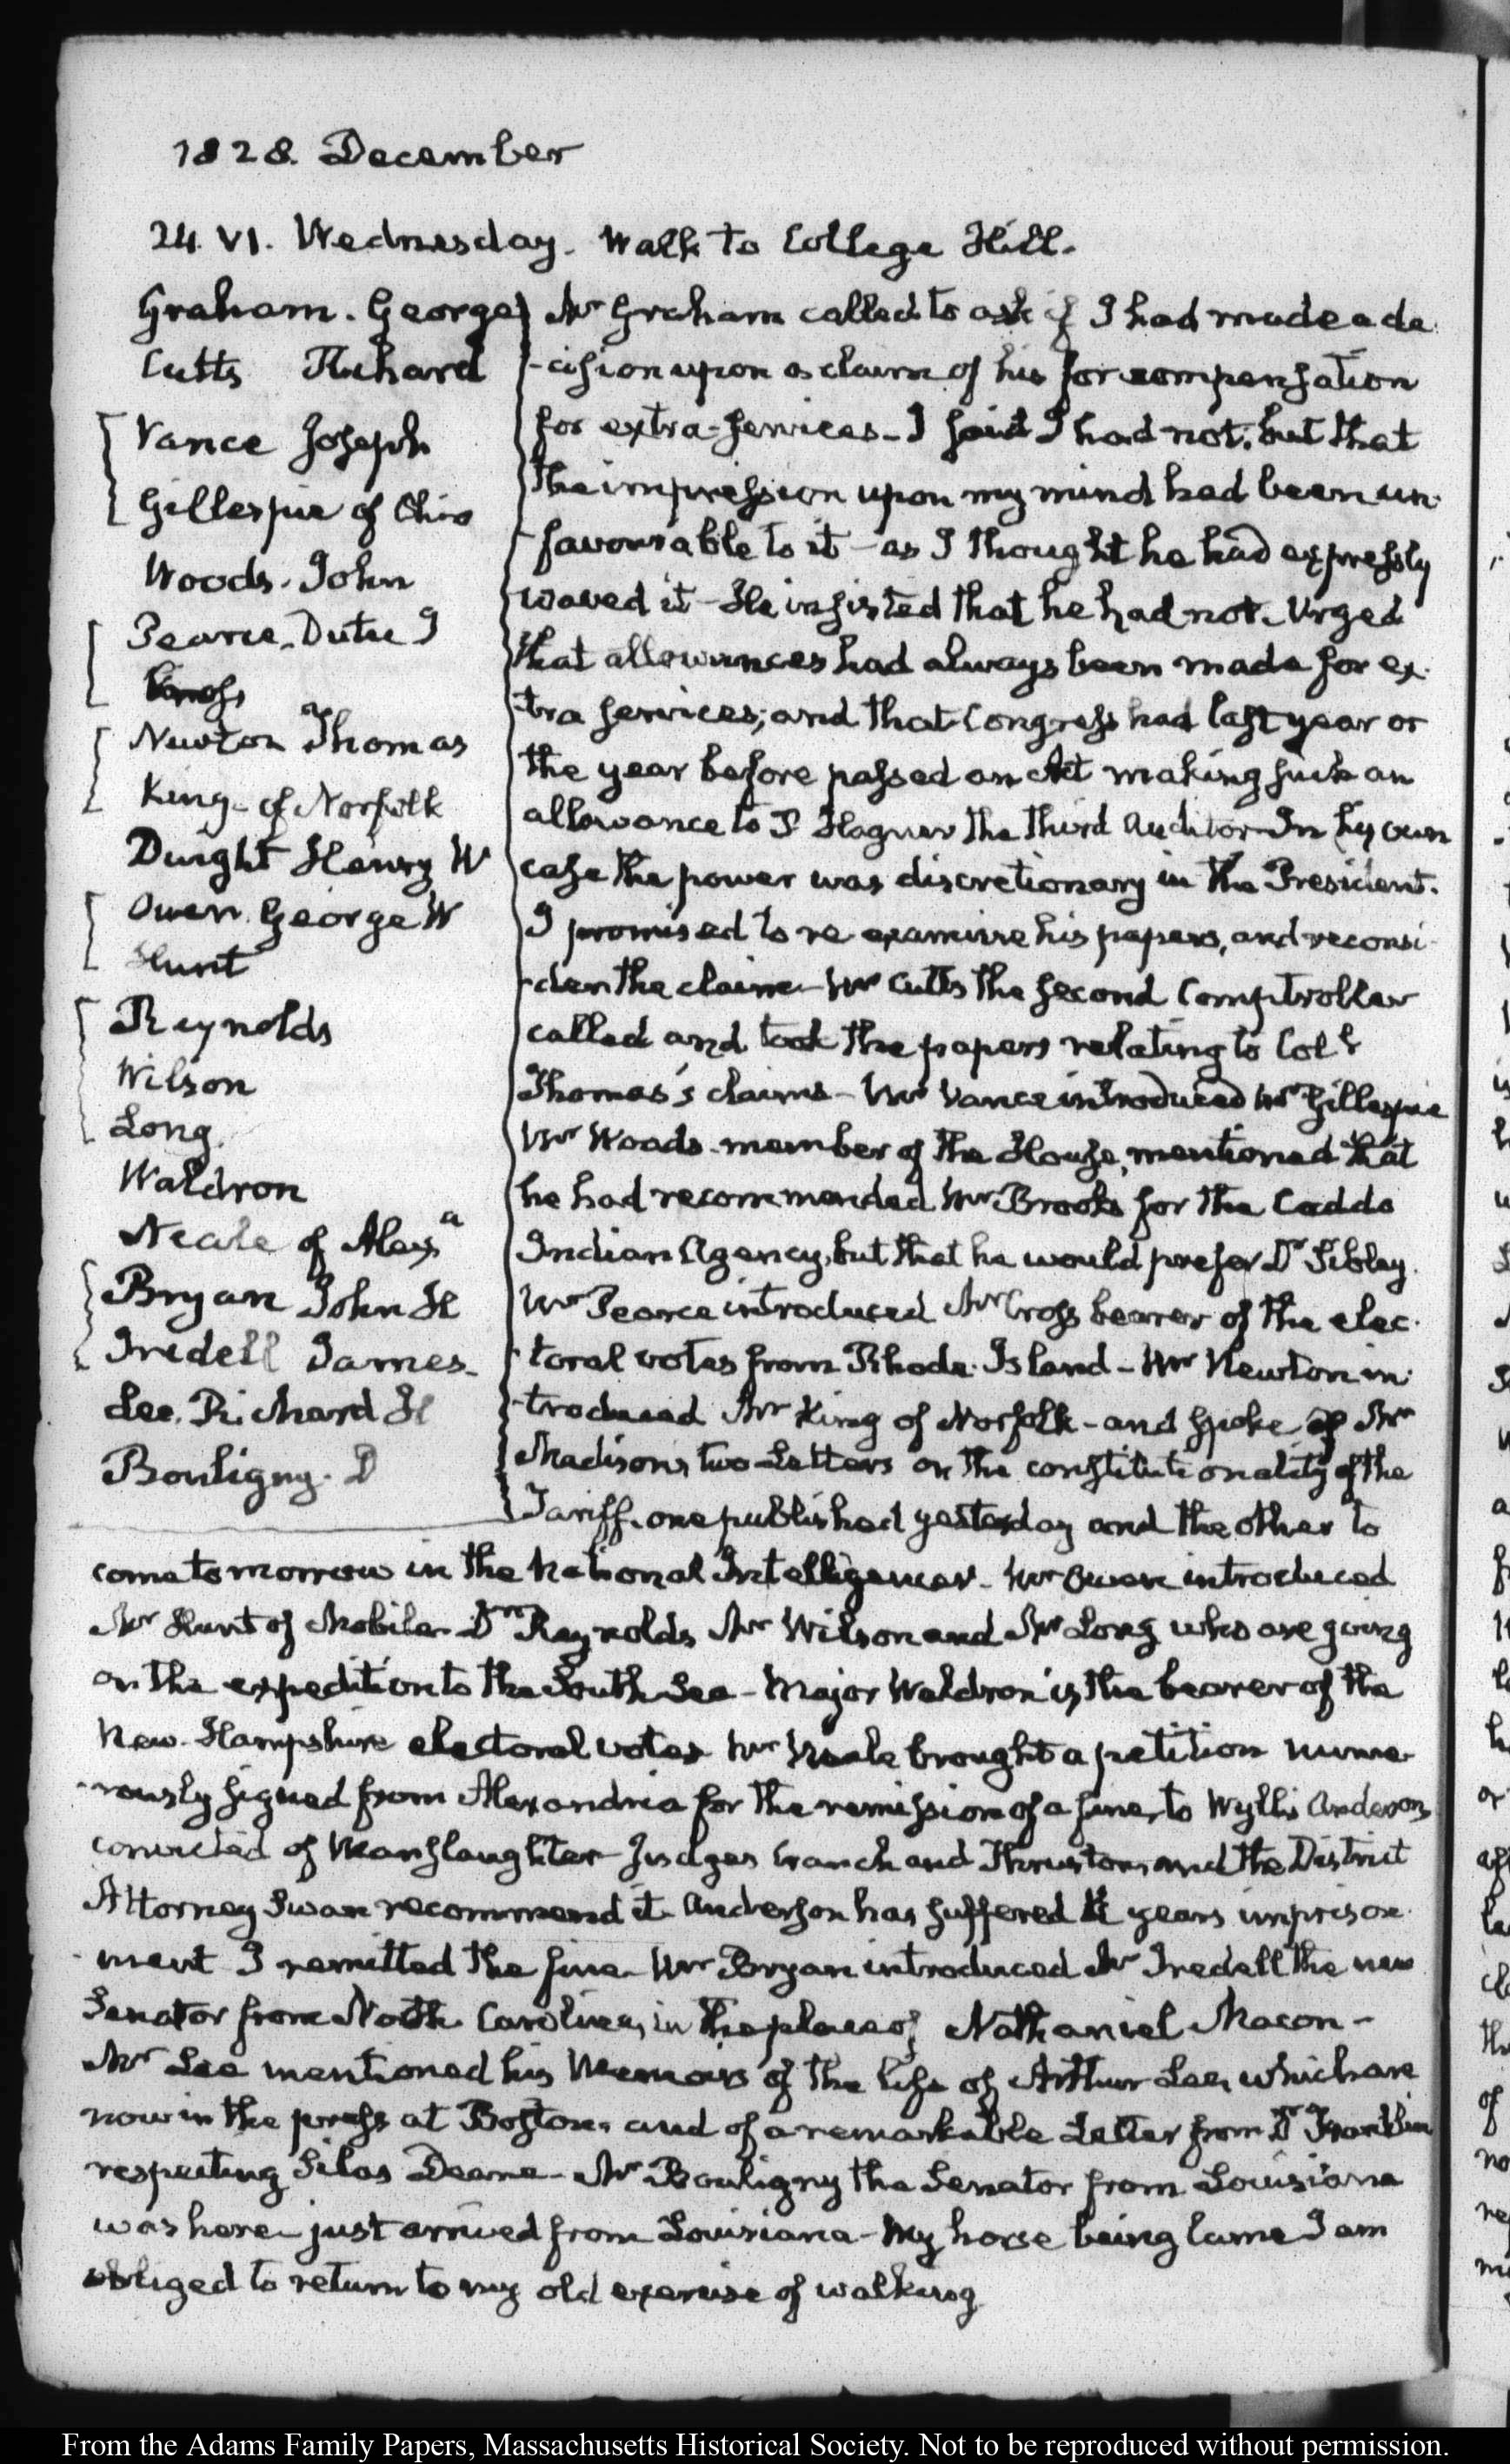 1828. December
24. VI. Wednesday. Walk to College Hill.
Graham. George
Cutts Richard
Vance Joseph
Gillespie of Ohio
Woods. John
Pearce. Dutee J
Cross
Newton Thomas
King of Norfolk
Dwight Henry W
Owen. George W
Hunt
Reynolds
Wilson
Long.
Waldron
Neale of Alexa
Bryan John H
Iredell James
Lee. Richard H
Bouligny. D
Mr Graham called to ask if I had made a de
-cision upon a claim of his for compensation
for extra-services- I said I had not, but that
the impression upon my mind had been un-
-favourable to it - as I thought he had expressly
waved it - He insisted that he had not. Urged
that allowances had always been made for ex-
-tra services; and that Congress had last year or
the year before passed an Act making such an
allowance to P Hagner the third Auditor- In his own
case the power was discretionary in the President.
I promised to re examine his papers, and reconsi-
-der the claim- Mr Cutts the second Comptroller
called and took the papers relating to Coll
Thomas's claims- Mr Vance introduced Mr Gillespie
Mr Woods. member of the House, mentioned that
he had recommended Mr Brooks for the Caddo
Indian Agency, but that he would prefer Dr Sibley.
Mr Pearce introduced Mr Cross bearer of the elec-
-toral votes from Rhode-Island- Mr Newton in-
-troduced Mr King of Norfolk- and spoke of Mr
Madison's two Letters on the constitutionality of the
Tariff. one published yesterday and the other to
come tomorrow in the National Intelligencer. Mr Owen introduced
Mr Hunt of Mobile- Dr Reynolds Mr Wilson and Mr Long who are going
on the expedition to the South Sea- Major Waldron is the bearer of the
New-Hampshire electoral votes Mr Neale brought a petition nume-
-rously signed from Alexandria for the remission of a fine, to Wyllis Anderson,
convicted of Manslaughter- Judges Cranch and Thruston, and the District
Attorney Swan recommend it. Anderson has suffered years imprison-
-ment I remitted the fine- Mr Bryan introduced Mr Iredell the new
Senator from North Carolina, in the place of Nathaniel Macon-
Mr Lee mentioned his Memoirs of the life of Arthur Lee, which are
now in the press at Boston, and of a remarkable Letter from Dr Franklin
respecting Silas Deane- Mr Bouligny the Senator from Louisiana
was here- just arrived from Louisiana- My horse being lame I am
obliged to return to my old exercise of walking
From the Adams Family Papers, Massachusetts Historical Society. Not to be reproduced without permission.